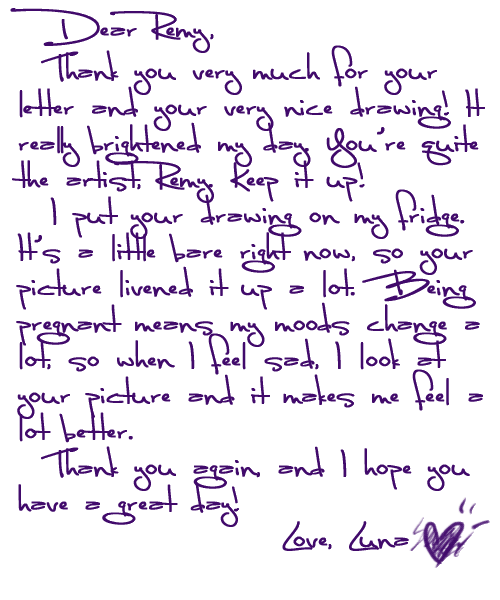 Dear Remy,
Thank you very much for your
letter and your very nice drawing! It
really brightened my day. You're quite
the artist, Remy. Keep it up!
I put your drawing on my fridge.
It's a little bare right now, so your
picture livened it up a lot. Being
pregnant means my moods change a
lot, so when I feel sad, I look at
your picture and it makes me feel a
lot better.
Thank you again, and I hope you
have a great day!
Love, Luna